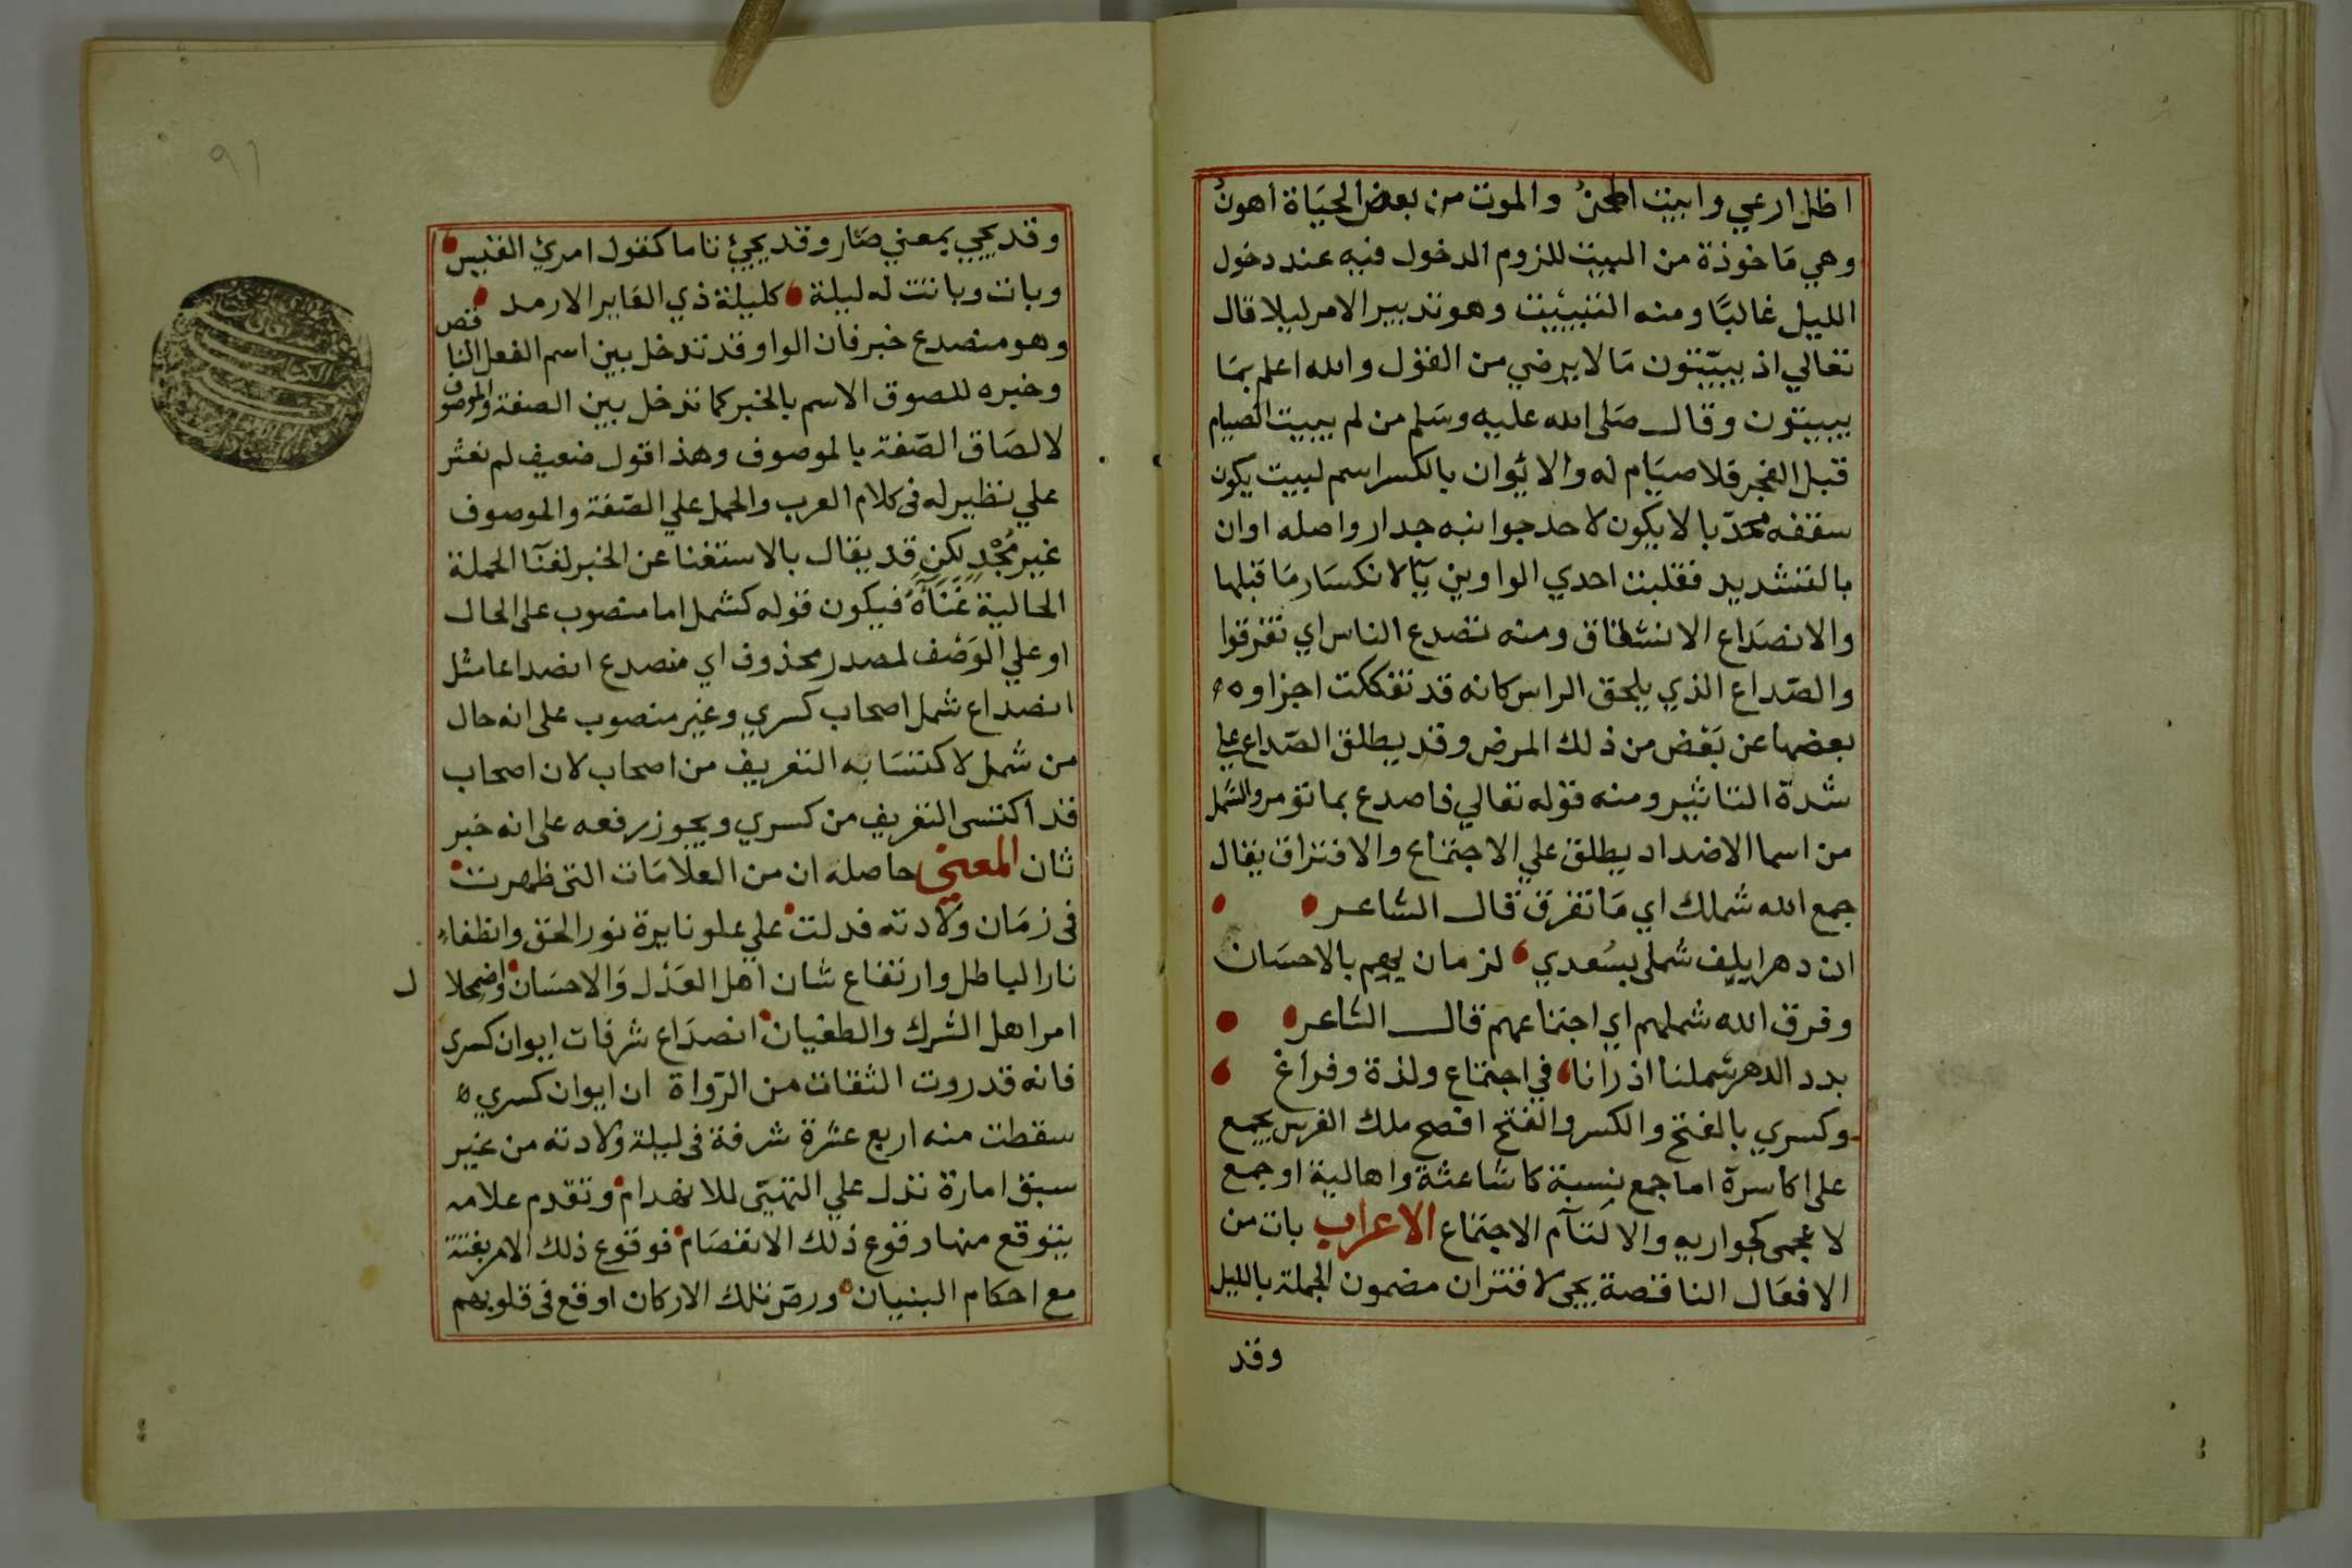 اظل ارعي وابيت اطحنُ والموت من بعض الحيَاة اهونُ
وهي مَاخوذة من البيت للزوم الدخول فيه عند دخول
الليل غالبًا ومنه التبييت وهو تدبير الامر ليلا قال
تعالي اذ يبيّتون مَا لا يرضي من القول والله اعلم بمَا
يبيتون وقال صَلى الله عليه وسَلم من لم يبيت الصيام
قبل الفجر فلا صيَام له والايوان بالكسر اسم لبيت يكون
سقفه محدّبا لا يكون لاحد جوانبه جدار واصله اوان
بالتشديد فقلبت احدي الواوين يآ لانكسَار مَا قبلها
والانصدَاع الانشقاق ومنه تصدع الناس اي تفرقوا
والصّداع الذي يلحق الراس كانه قد تفككت اجزاوه
بعضها عن بَعْض من ذلك المرض وقد يطلق الصّداع علي
شدة التاثير ومنه قوله تعالي فاصدع بما تومر والشمل
من اسما الاضداد يطلق علي الاجتماع والافتراق يقال
جمع الله شملك اي مَا تفرق قال الشاعر
ان دهرا يلف شملي بسُعدي لزمان يهم بالاحسَان
وفرق الله شملهم اي اجتماعهم قال الشاعر
بدد الدهر شملنا اذ رانا في اجتماع ولذة وفراغ
وكسري بالفتح والكسر والفتح افصح ملك الفرس يجمع
على اكاسرة اما جمع نسبة كاشاعثة واهالية او جمع
لاعجمى كجواربه والالتآم الاجتماع الاعراب بات من
الافعَال الناقصة يجى لاقتران مضمون الجملة بالليل
وقد
٩١
وقد يجيي بمعني صَار وقد يجيئ تاما كقول امرئ القيس
وبات وباتت له ليلة كليلة ذي العَاير الارمد
وهو منصدع خبر فان الواو قد تدخل بين اسم الفعل الناقص
وخبره للصوق الاسم بالخبر كما تدخل بين الصفة والموصوف
لالصَاق الصّفة بالموصوف وهذا قول ضعيف لم نعثر
علي نظير له فى كلام العرب والحمل علي الصّفة والموصوف
غير مُجْدٍ لكن قد يقال بالاستغنا عن الخبر لغنآ الجملة
الحالية غَنَآهُ فيكون قوله كشمل اما منصوب على الحال
او علي الوَصْف لمصدر محذوف اي منصدع انصداعا مثل
انصداع شمل اصحاب كسري وغير منصوب على انه حال
من شمل لاكتسَابه التعريف من اصحاب لان اصحاب
قد اكتسى التعريف من كسري ويجوز رفعه على انه خبر
ثان المعنى حاصله ان من العلامَات التى ظهرت
فى زمَان ولادته فدلت علي علو نايرة نور الحق وانطفاء
نار الباطل وارتفاع شان اهل العَدْل وَالاحسَان واضمحلال
امر اهل الشرك والطغيان انصدَاع شرفات ايوان كسري
فانه قد روت الثقات من الرّواة ان ايوان كسري
سقطت منه اربع عشرة شرفة فى ليلة ولادته من غير
سبق امارة تدل علي التهيّى للانهدام وتقدم علامه
يتوقع منها وقوع ذلك الانفصَام فوقوع ذلك الامر بغتة
مع احكام البنيان ورصّ تلك الاركان اوقع فى قلوبهم